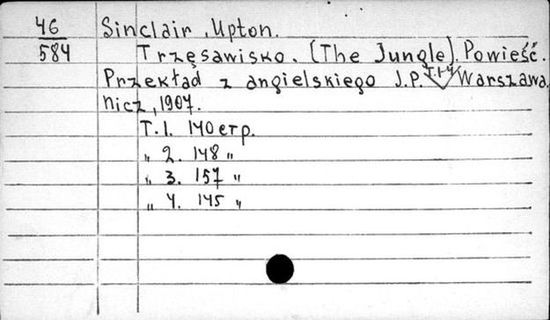 46
584
Sinclair, Upton.
Trzęsawisko. (The Jungle). Powieść.
Przekład z angielskiego J.P. T.1-4 Warszawa,
nicz, 1907.
T.1. 140 стр.
„ 2. 148 „
„ 3. 157 „
„ 4. 145 „